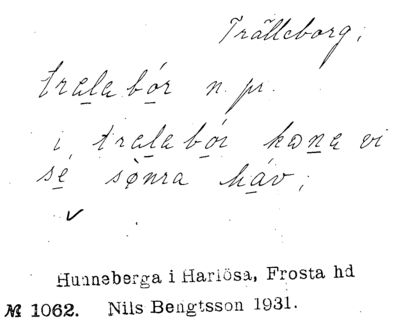 Trälleborg;
tralabór n. pr.
i tralabór kona vi
sé sønra háv;
Hunneberga i Harlösa, Frosta hd
№ 1062. Nils Bengtsson 1931.